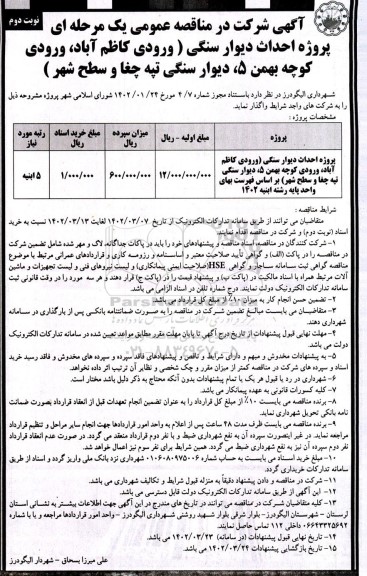 نوبت دوم
آگهی شرکت در مناقصه عمومی یک مرحله ای
پروژه احداث دیوار سنگی ( ورودی کاظم آباد، ورودی
کوچه بهمن ۵، دیوار سنگی تپه چغا و سطح شهر )
شهرداری الیگودرز در نظر دارد باستناد مجوز شماره ۴/۷ مورخ ۱۴۰۲/۰۱/۲۴ شورای اسلامی شهر پروژه مشروحه ذیل
را به شرکت های واجد شرایط واگذار نماید.
مشخصات پروژه :
پروژه | مبلغ اولیه - ریال | میزان سپرده ریال | مبلغ خرید اسناد ریال | رتبه مورد نیاز
پروژه احداث دیوار سنگی (ورودی کاظم آباد، ورودی کوچه بهمن ۵، دیوار سنگی تپه چغا و سطح شهر) بر اساس فهرست بهای واحد پایه رشته ابنیه ۱۴۰۲ | ۱۲/۰۰۰/۰۰۰/۰۰۰ | ۶۰۰/۰۰۰/۰۰۰ | ۱/۰۰۰/۰۰۰ | ۵ ابنیه
شرایط مناقصه :
متقاضیان می توانند از طریق سامانه تدارکات الکترونیک از تاریخ ۱۴۰۲/۰۳/۰۷ لغایت ۱۴۰۲/۰۳/۱۳ نسبت به خرید
اسناد (نوبت دوم) و شرکت در مناقصه اقدام نمایند.
۱- شرکت کنندگان در مناقصه، اسناد مناقصه و پیشنهادهای خود را باید در پاکات جداگانه، لاک و مهر شده شامل تضمین شرکت
در مناقصه را در پاکت (الف) و گواهی تأیید صلاحیت معتبر و اساسنامه و رزومه کاری و قراردادهای عمرانی مرتبط با موضوع
مناقصه گواهی ثبت سامانه ساجار و گواهی HSE(صلاحیت ایمنی پیمانکاری) و لیست نیروهای فنی و لیست تجهیزات و ماشین
آلات مرتبط همراه با اسناد مالکیت در (پاکت ب) و پیشنهاد قیمت را در (پاکت ج) قرار دهند و هر سه مورد را در وقت قانونی ثبت
سامانه تدارکات الکترونیک دولت نمایند. درج شماره تلفن در اسناد الزامی می باشد.
۲- تضمین حسن انجام کار به میزان ۱۰٪ از مبلغ کل قرارداد می باشد.
۳- متقاضیان می بایست مبالغ تضمین شرکت در مناقصه را به صورت ضمانتنامه بانکی پس از بارگذاری در سامانه
شهرداری دهند.
۴- مهلت نهایی قبول پیشنهادات از تاریخ درج آگهی تا پایان مهلت مقرر مطابق مواعد تعیین شده در سامانه تدارکات الکترونیک
دولت می باشد.
۵- به پیشنهادات مخدوش و مبهم و دارای شرایط و ناقص و پیشنهادهای فاقد سپرده و سپرده های مخدوش و فاقد رسید خرید
اسناد و سپرده های شرکت در مناقصه کمتر از میزان مقرر و چک شخصی و نظایر آن ترتیب اثر داده نخواهد.
۶- شهرداری در رد یا قبول هر یک یا تمام پیشنهادات بدون آنکه محتاج به ذکر دلیل باشد مختار است.
۷- کلیه کسورات قانونی به عهده پیمانکار می باشد.
۸- برنده مناقصه می بایست ۱۰٪ از مبلغ کل قرارداد را به عنوان تضمین انجام تعهدات قبل از انعقاد قرارداد بصورت ضمانت
نامه بانکی تحویل شهرداری نماید.
۹- برنده مناقصه می بایست ظرف مدت ۴۸ ساعت پس از اعلام به واحد امور قراردادها جهت انجام سایر مراحل و تنظیم قرارداد
مراجعه نماید. در غیر اینصورت سپرده آن به نفع شهرداری ضبط و با نفر دوم قرارداد منعقد می گردد. در صورت عدم انعقاد قرارداد
نفر دوم سپرده آن نیز به نفع شهرداری ضبط می گردد. همین شرایط برای نفر سوم نیز اعمال خواهد شد.
۱۰- مبلغ خرید اسناد می بایست به حساب شماره ۰۱۰۶۰۸۰۹۷۵۰۰۶ شهرداری نزد بانک ملی واریز گردد و اسناد از طریق
سامانه تدارکات خریداری گردد.
۱۱- شرکت در مناقصه و دادن پیشنهاد دقیقاً به منزله قبول شرایط و تکالیف شهرداری می باشد.
۱۲- این آگهی از طریق سامانه تدارکات الکترونیک دولت قابل دسترسی می باشد.
۱۳- کلیه متقاضیان شرکت در مناقصه می توانند در تاریخ های مندرج در این آگهی جهت اطلاعات بیشتر به نشانی استان
لرستان - شهرستان الیگودرز- بلوار شرقی بلوار شهید روشنی شهرداری الیگودرز - واحد امور قراردادها مراجعه و یا با شماره
۰۶۶۴۳۳۲۵۶۹۲ داخلی ۱۱۲ تماس حاصل نمایند.
۱۴- تاریخ نهایی قبول پیشنهادات (در سامانه) ۱۴۰۲/۰۳/۲۳ می باشد.
۱۵- تاریخ بازگشایی پیشنهادات ۱۴۰۲/۰۳/۲۴ می باشد.
علی میرزا بسحاق - شهردار الیگودرز